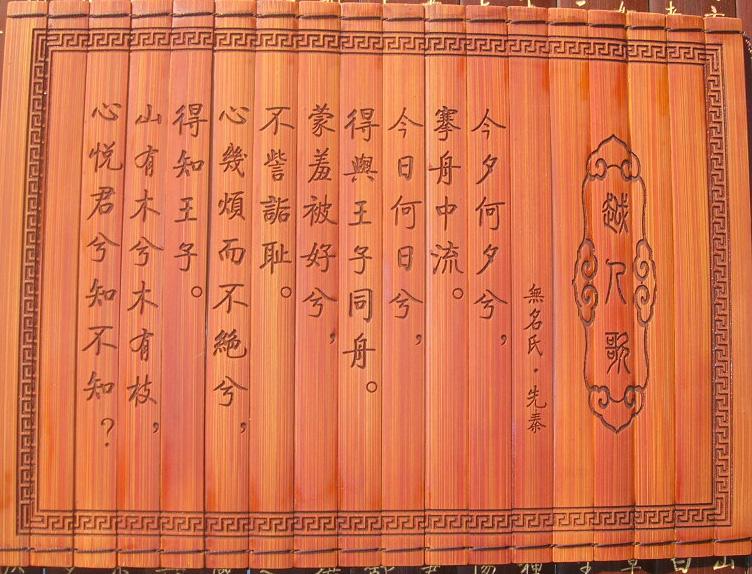 越人歌
無名氏·先秦
今夕何夕兮，
搴舟中流。
今日何日兮，
得與王子同舟。
蒙羞被好兮，
不訾詬恥。
心幾煩而不絕兮，
得知王子。
山有木兮木有枝，
心悅君兮知不知？